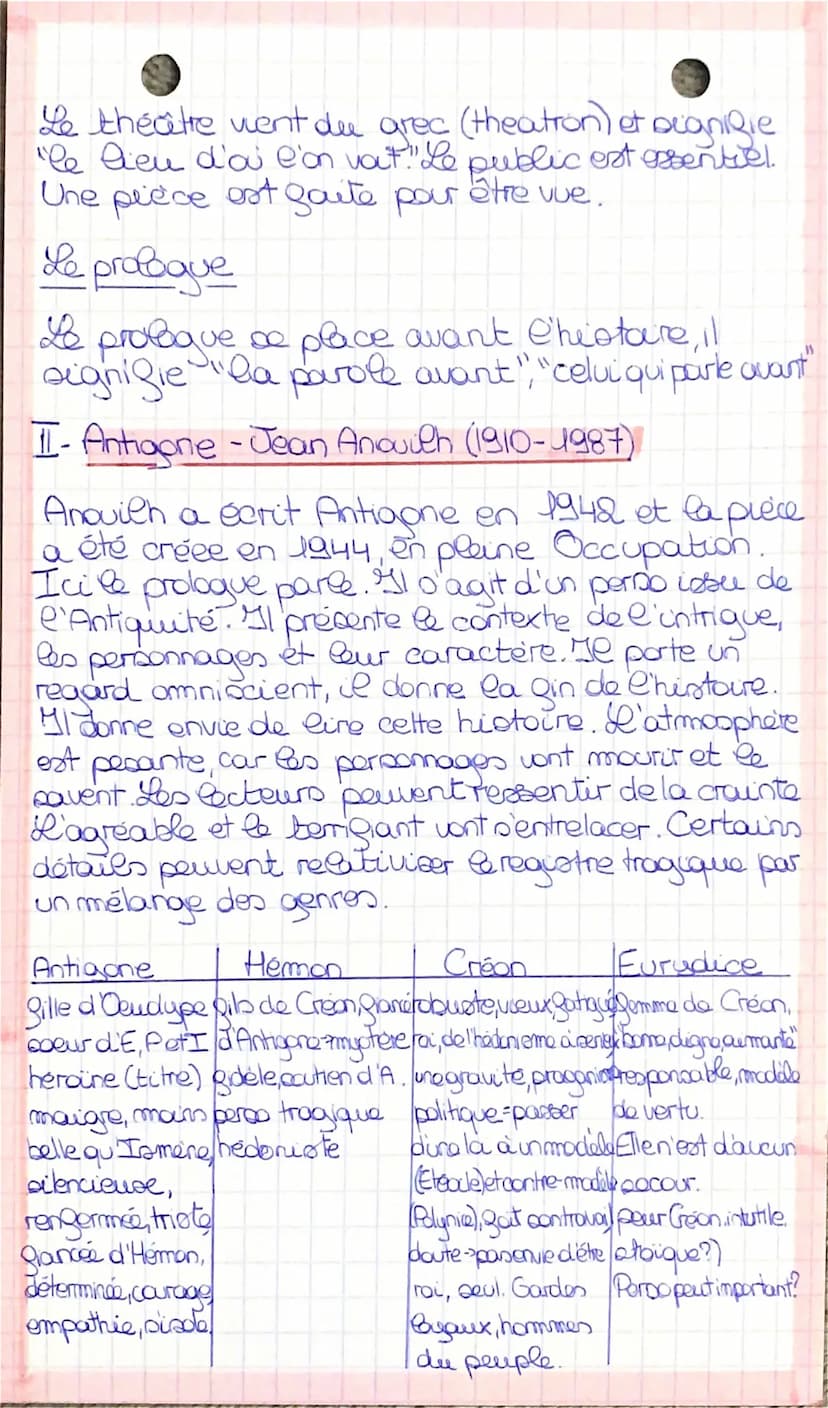 Le théâtre vient du grec (theatron) et signifie
"le lieu d'où l'on voit". Le public est essentiel.
Une pièce est faite pour être vue.
Le prologue
Le prologue se place avant l'histoire, il
signifie "la parole avant", "celui qui parle avant"
II - Antigone - Jean Anouilh (1910-1987)
Anouilh a écrit Antigone en 1942 et la pièce
a été créée en 1944, en pleine Occupation.
Ici le prologue parle. Il s'agit d'un perso issu de
l'Antiquité. Il présente le contexte de l'intrigue,
les personnages et leur caractère. Il porte un
regard omniscient, il donne la fin de l'histoire.
Il donne envie de lire cette histoire. L'atmosphère
est pesante, car les personnages vont mourir et le
savent. Les lecteurs peuvent ressentir de la crainte
L'agréable et le terrifiant vont s'entrelacer. Certains
détails peuvent relativiser le registre tragique par
un mélange des genres.
Antigone Hémon Créon Eurydice
fille d'Oeudype fils de Créon, fiancé robuste, vieux, fatigué femme de Créon,
soeur d'E, P et I d'Antigone → mystère roi, de l'hédonisme à bonne, digne, aimante
héroïne (titre) fidèle, soutien d'A. une gravité, responsable, modèle
maigre, moins perso tragique politique = passer de vertu.
belle qu'Ismène, hédoniste dira là à un modèle Elle n'est d'aucun
silencieuse, (Etéocle) et contre-modèle secour.
renfermée, triste (Polynice), fait pour Créon, inutile,
fiancée d'Hémon, doute → pas envie d'être stoïque?)
déterminée, courage, roi, seul. Gardes Perso peut important?
empathie, s'isole loyaux, hommes
du peuple.